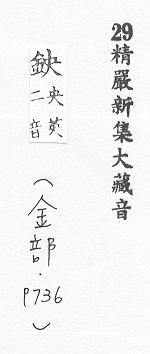 29精嚴新集大藏音
鉠 央英二音
(金部.P736)